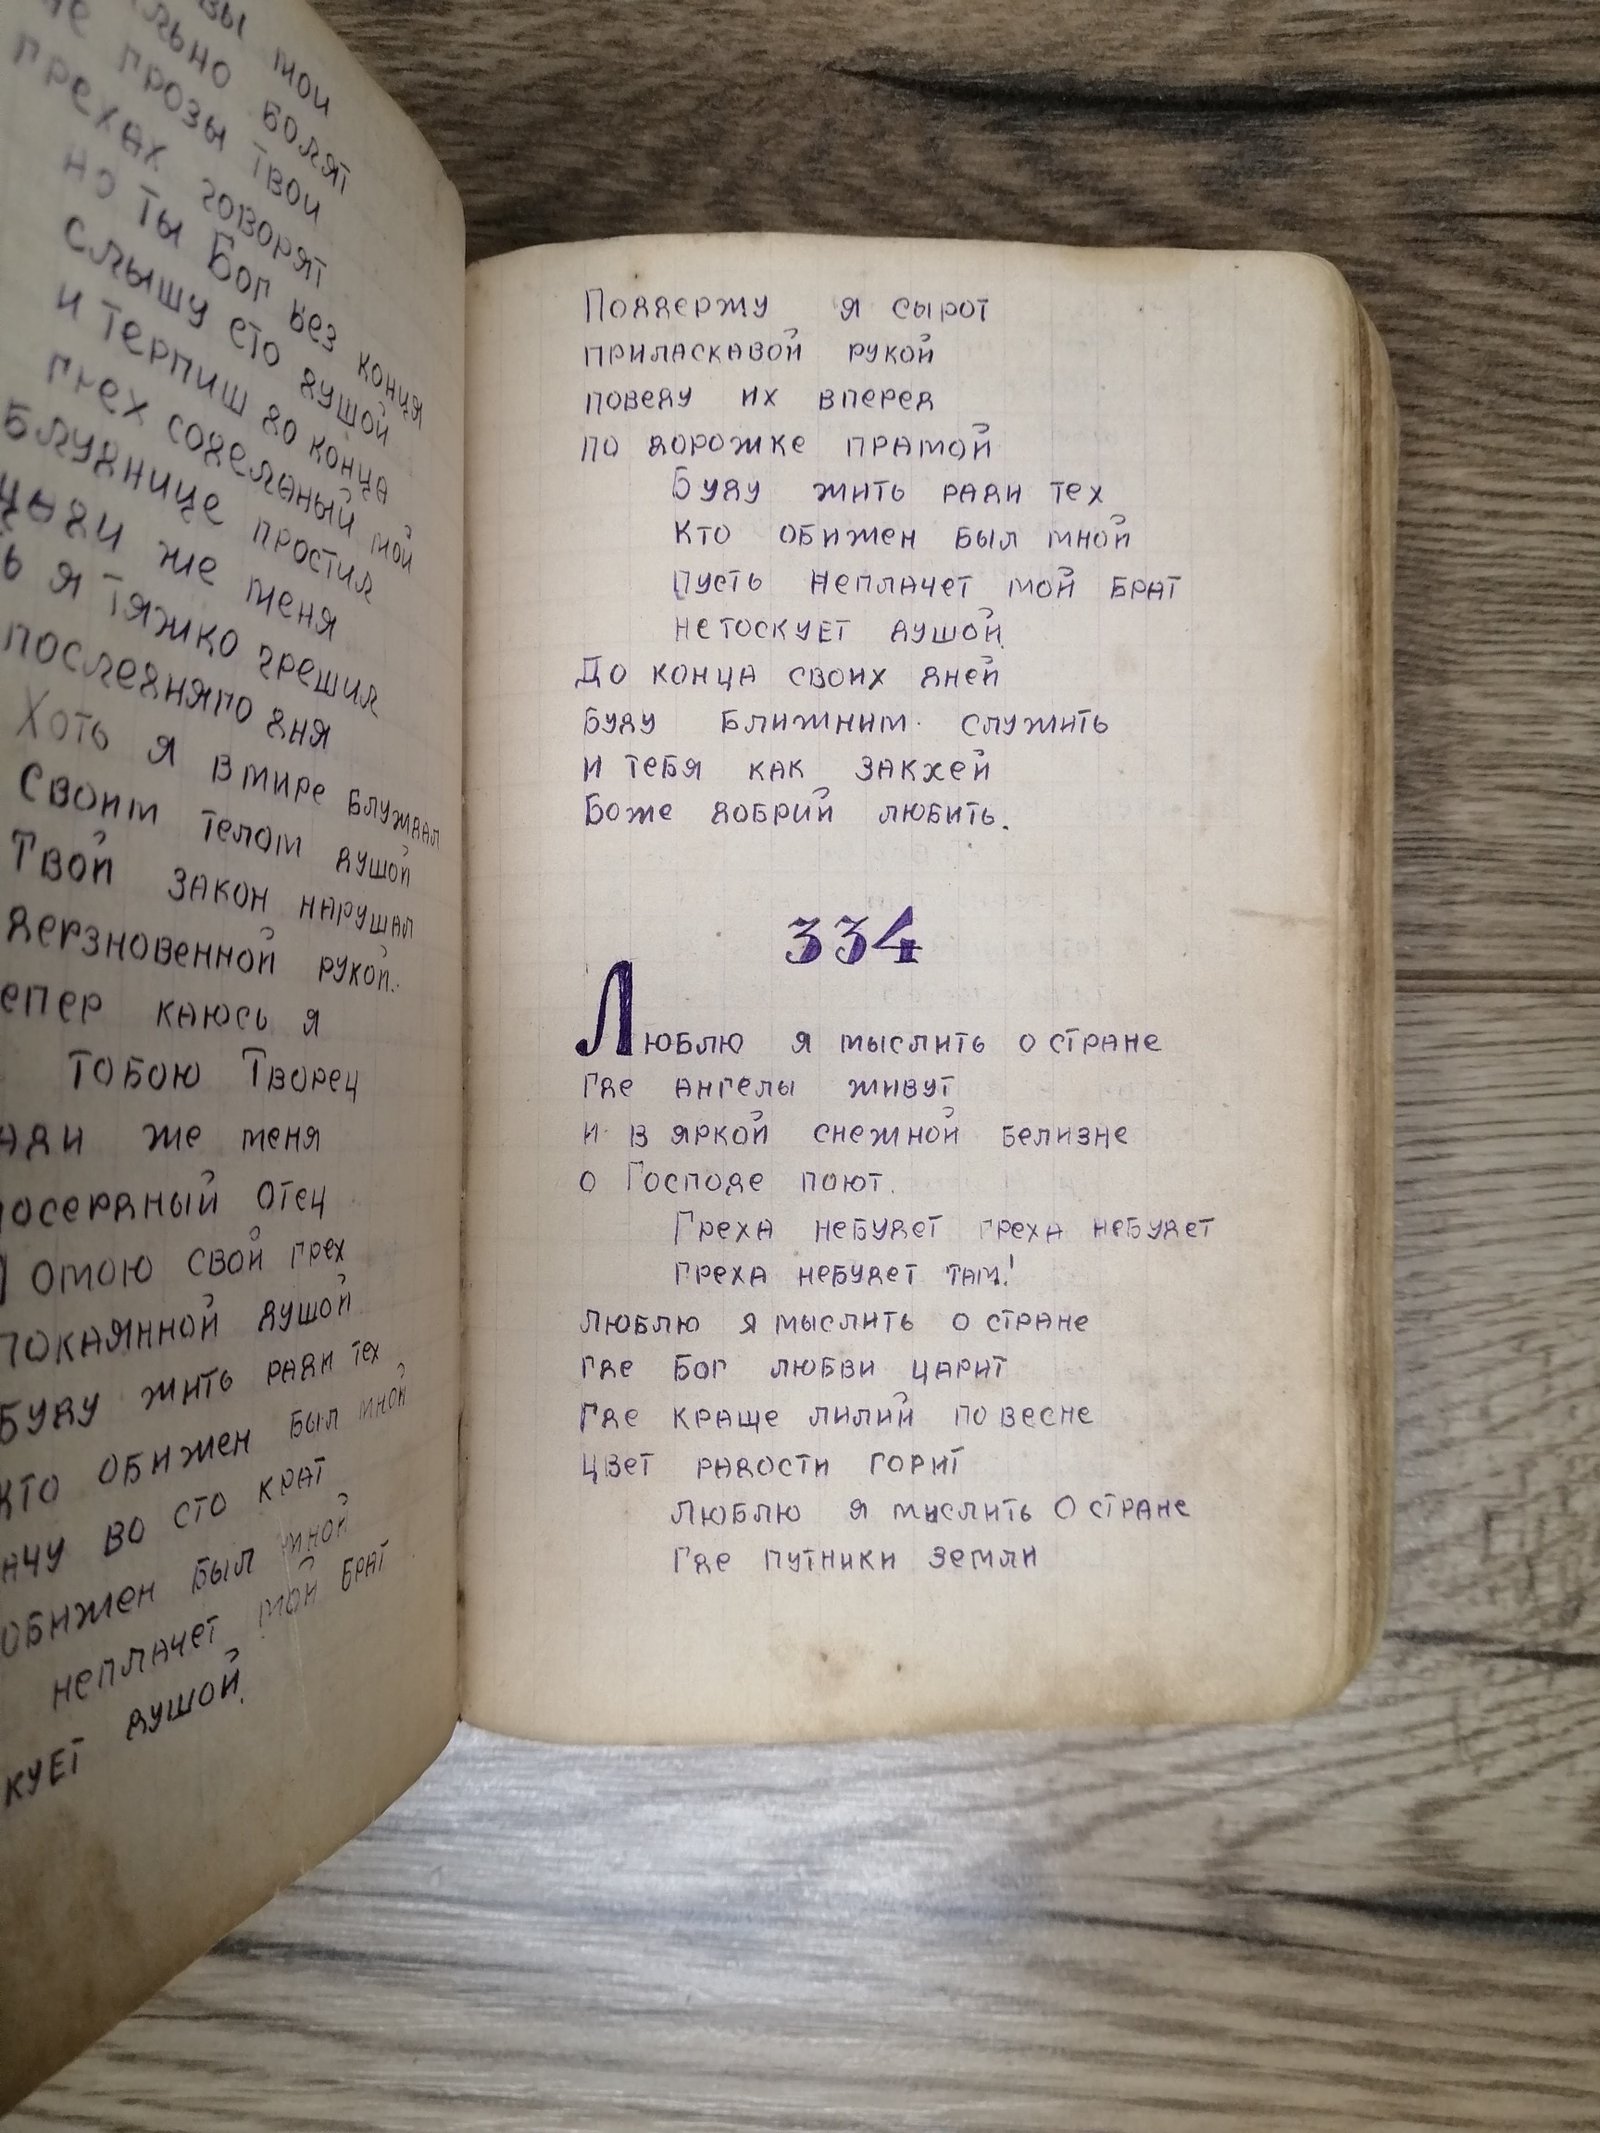 вы мои
льно болят
грозы твои
грехах говорят
но ты Бог без конца
слышу сто душой
и терпиш до конца
грех соделаный мой
Блуднице простил
щади же меня
ь я тяжко грешил
последняго дня
Хоть я в мире блуждал
Своим телом душой
Твой закон нарушал
дерзновенной рукой.
епер каюсь я
тобою Творец
ади же меня
лосердный Отец
омою свой грех
покаянной душой
Буду жить ради тех
кто обижен был мной
ачу во сто крат
обижен был мной
неплачет мой брат
кует душой.
Поддержу я сырот
приласкавой рукой
поведу их вперед
по дорожке прамой
Буду жить ради тех
Кто обижен был мной
пусть неплачет мой брат
нетоскует душой.
До конца своих дней
Буду ближним служить
и тебя как Закхей
Боже добрий любить.
334
Люблю я мыслить о стране
где ангелы живут
и в яркой снежной белизне
о Господе поют.
Греха небудет греха небудет
греха небудет там!
Люблю я мыслить о стране
где Бог любви царит
Где краще лилий по весне
цвет радости горит
Люблю я мыслить о стране
Где путники земли